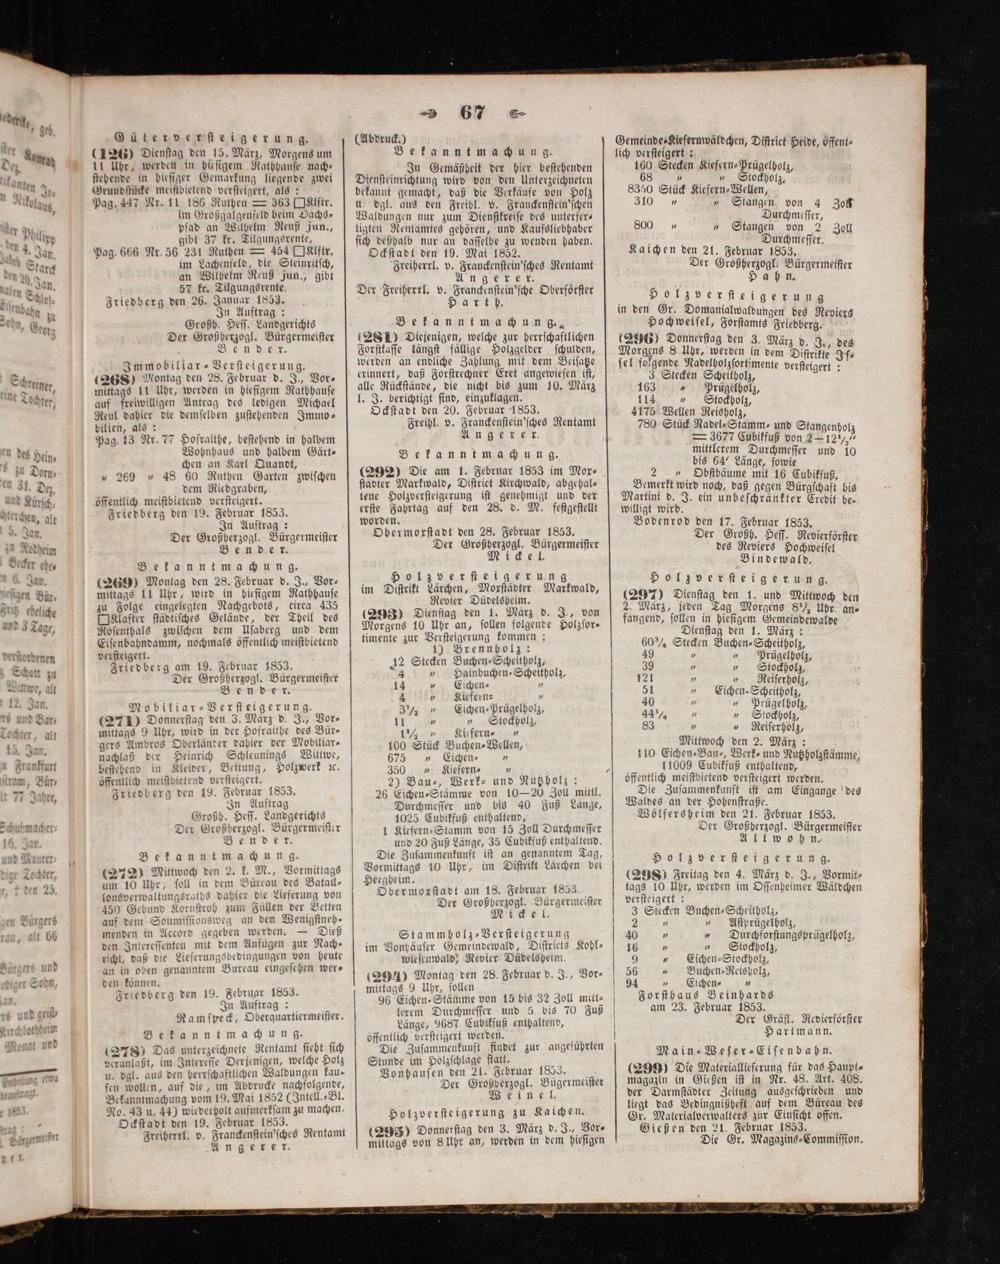 67
Güterversteigerung.
(126) Dienstag den 15. März, Morgens um
11 Uhr, werden in hiesigem Rathhause nach-
stehende in hiesiger Gemarkung liegende zwei
Grundstücke meistbietend versteigert, als:
Pag. 447 Nr. 11 186 Ruthen = 363 □Klftr.
im Großgalgenfeld beim Dachs-
pfad an Wilhelm Reuß jun.,
gibt 37 kr. Tilgungsrente,
Pag. 666 Nr. 56 231 Ruthen = 454 □Klftr.
im Lachenfeld, die Steinritsch,
an Wilhelm Reuß jun., gibt
57 kr. Tilgungsrente.
Friedberg den 26. Januar 1853.
In Auftrag:
Großh. Hess. Landgerichts
Der Großherzogl. Bürgermeister
Bender.
Immobiliar-Versteigerung.
(268) Montag den 28. Februar d. J., Vor-
mittags 11 Uhr, werden in hiesigem Rathhause
auf freiwilligen Antrag des ledigen Michael
Reul dahier die demselben zustehenden Immo-
bilien, als:
Pag. 13 Nr. 77 Hofraithe, bestehend in halbem
Wohnhaus und halbem Gärt-
chen an Karl Quandt,
„ 269 „ 48 60 Ruthen Garten zwischen
dem Riedgraben,
öffentlich meistbietend versteigert.
Friedberg den 19. Februar 1853.
In Auftrag:
Der Großherzogl. Bürgermeister
Bender.
Bekanntmachung.
(269) Montag den 28. Februar d. J., Vor-
mittags 11 Uhr, wird in hiesigem Rathhause
zu Folge eingelegten Nachgebots, circa 435
□Klafter städtisches Gelände, der Theil des
Rosenthals zwischen dem Usaberg und dem
Eisenbahndamm, nochmals öffentlich meistbietend
versteigert.
Friedberg am 19. Februar 1853.
Der Großherzogl. Bürgermeister
Bender.
Mobiliar-Versteigerung.
(271) Donnerstag den 3. März d. J., Vor-
mittags 9 Uhr, wird in der Hofraithe des Bür-
gers Ambros Oberländer dahier der Mobiliar-
nachlaß der Heinrich Schleunings Wittwe,
bestehend in Kleider, Bettung, Holzwerk ꝛc.
öffentlich meistbietend versteigert.
Friedberg den 19. Februar 1853.
In Auftrag
Großh. Hess. Landgerichts
Der Großherzogl. Bürgermeister
Bender.
Bekanntmachung.
(272) Mittwoch den 2. k. M., Vormittags
um 10 Uhr, soll in dem Büreau des Batail-
lonsverwaltungsraths dahier die Lieferung von
450 Gebund Kornstroh zum Füllen der Betten
auf dem Soumissionsweg an den Wenigstneh-
menden in Accord gegeben werden. — Dieß
den Interessenten mit dem Anfügen zur Nach-
richt, daß die Lieferungsbedingungen von heute
an in oben genanntem Bureau eingesehen wer-
den können.
Friedberg den 19. Februar 1853.
In Auftrag:
Ramspeck, Oberquartiermeister.
Bekanntmachung.
(278) Das unterzeichnete Rentamt sieht sich
veranlaßt, im Interesse Derjenigen, welche Holz
u. dgl. aus den herrschaftlichen Waldungen kau-
fen wollen, auf die, im Abdrucke nachfolgende,
Bekanntmachung vom 19. Mai 1852 (Intell.-Bl.
No. 43 u. 44) wiederholt aufmerksam zu machen.
Ockstadt den 19. Februar 1853.
Freiherrl. v. Franckenstein'sches Rentamt
Angerer.
(Abdruck.)
Bekanntmachung.
In Gemäßheit der hier bestehenden
Diensteinrichtung wird von den Unterzeichneten
bekannt gemacht, daß die Verkäufe von Holz
u. dgl. aus den Freihl. v. Franckenstein'schen
Waldungen nur zum Dienstkreise des unterfer-
tigten Rentamtes gehören, und Kaufsliebhaber
sich deßhalb nur an dasselbe zu wenden haben.
Ockstadt den 19. Mai 1852.
Freiherrl. v. Franckenstein'sches Rentamt
Angerer.
Der Freiherrl. v. Franckenstein'sche Oberförster
Harth.
Bekanntmachung.
(281) Diejenigen, welche zur herrschaftlichen
Forstkasse längst fällige Holzgelder schulden,
werden an endliche Zahlung mit dem Beisatze
erinnert, daß Forstrechner Eret angewiesen ist,
alle Rückstände, die nicht bis zum 10. März
l. J. berichtigt sind, einzuklagen.
Ockstadt den 20. Februar 1853.
Freihl. v. Franckenstein'sches Rentamt
Angerer.
Bekanntmachung.
(292) Die am 1. Februar 1853 im Mor-
städter Markwald, District Kirchwald, abgehal-
tene Holzversteigerung ist genehmigt und der
erste Fahrtag auf den 28. d. M. festgestellt
worden.
Obermorstadt den 28. Februar 1853.
Der Großherzogl. Bürgermeister
Mickel.
Holzversteigerung
im Distrikt Lärchen, Morstädter Markwald,
Revier Düdelsheim.
(293) Dienstag den 1. März d. J., von
Morgens 10 Uhr an, sollen folgende Holzsor-
timente zur Versteigerung kommen:
1) Brennholz:
12 Stecken Buchen-Scheitholz,
4 „ Hainbuchen-Scheitholz,
14 „ Eichen- „
4 „ Kiefern- „
3½ „ Eichen-Prügelholz,
11 „ „ Stockholz,
1½ „ Kiefern- „
100 Stück Buchen-Wellen,
675 „ Eichen- „
350 „ Kiefern- „
2) Bau-, Werk- und Nutzholz:
26 Eichen-Stämme von 10—20 Zoll mittl.
Durchmesser und bis 40 Fuß Länge,
1025 Cubikfuß enthaltend,
1 Kiefern-Stamm von 15 Zoll Durchmesser
und 20 Fuß Länge, 35 Cubikfuß enthaltend.
Die Zusammenkunft ist an genanntem Tag,
Vormittags 10 Uhr, im Distrikt Lärchen bei
Heegheim.
Obermorstadt am 18. Februar 1853.
Der Großherzogl. Bürgermeister
Mickel.
Stammholz-Versteigerung
im Vonhäuser Gemeindewald, Districts Kohl-
wiesenwald, Revier Düdelsheim.
(294) Montag den 28. Februar d. J., Vor-
mittags 9 Uhr, sollen
96 Eichen-Stämme von 15 bis 32 Zoll mitt-
lerem Durchmesser und 5 bis 70 Fuß
Länge, 9687 Cubikfuß enthaltend,
öffentlich versteigert werden.
Die Zusammenkunft findet zur angeführten
Stunde im Holzschlage statt.
Vonhausen den 21. Februar 1853.
Der Großherzogl. Bügermeister
Weinel.
Holzversteigerung zu Kaichen.
(295) Donnerstag den 3. März d. J., Vor-
mittags von 8 Uhr an, werden in dem hiesigen
Gemeinde-Kiefernwäldchen, District Heide, öffent-
lich versteigert:
160 Stecken Kiefern-Prügelholz,
68 „ „ Stockholz,
8350 Stück Kiefern-Wellen,
310 „ „ Stangen von 4 Zoll
Durchmesser,
800 „ „ Stangen von 2 Zoll
Durchmesser.
Kaichen den 21. Februar 1853.
Der Großherzogl. Bürgermeister
Hahn.
Holzversteigerung
in den Gr. Domanialwaldungen des Reviers
Hochweisel, Forstamts Friedberg.
(296) Donnerstag den 3. März d. J., des
Morgens 8 Uhr, werden in dem Distrikte Is-
sel folgende Nadelholzsortimente versteigert:
3 Stecken Scheitholz,
163 „ Prügelholz,
114 „ Stockholz,
4175 Wellen Reisholz,
780 Stück Nadel-Stamm- und Stangenholz
= 3677 Cubikfuß von 2—12½"
mittlerem Durchmesser und 10
bis 64' Länge, sowie
2 „ Obstbäume mit 16 Cubikfuß.
Bemerkt wird noch, daß gegen Bürgschaft bis
Martini d. J. ein unbeschränkter Credit be-
willigt wird.
Bodenrod den 17. Februar 1853.
Der Großh. Hess. Revierförster
des Reviers Hochweisel
Bindewald.
Holzversteigerung.
(297) Dienstag den 1. und Mittwoch den
2. März, jeden Tag Morgens 8½ Uhr an-
fangend, sollen in hiesigem Gemeindewalde
Dienstag den 1. März:
60¾ Stecken Buchen-Scheitholz,
49 „ „ Prügelholz,
39 „ „ Stockholz,
121 „ „ Reiserholz,
51 „ Eichen-Scheitholz,
40 „ „ Prügelholz,
44¼ „ „ Stockholz,
83 „ „ Reiserholz,
Mittwoch den 2. März:
110 Eichen-Bau-, Werk- und Nutzholzstämme,
11009 Cubikfuß enthaltend,
öffentlich meistbietend versteigert werden.
Die Zusammenkunft ist am Eingange des
Waldes an der Hohenstraße.
Wölfersheim den 21. Februar 1853.
Der Großherzogl. Bürgermeister
Allwohn.
Holzversteigerung.
(298) Freitag den 4. März d. J., Vormit-
tags 10 Uhr, werden im Ossenheimer Wäldchen
versteigert:
3 Stecken Buchen-Scheitholz,
2 „ „ Astprügelholz,
40 „ „ Durchforstungsprügelholz,
16 „ „ Stockholz,
9 „ Eichen-Stockholz,
56 „ Buchen-Reisholz,
94 „ Eichen- „
Forsthaus Beinhards
am 23. Februar 1853.
Der Gräfl. Revierförster
Hartmann.
Main-Weser-Eisenbahn.
(299) Die Materiallieferung für das Haupt-
magazin in Gießen ist in Nr. 48. Art. 408.
der Darmstädter Zeitung ausgeschrieben und
liegt das Bedingnißheft auf dem Büreau des
Gr. Materialverwalters zur Einsicht offen.
Gießen den 21. Februar 1853.
Die Gr. Magazins-Commission.